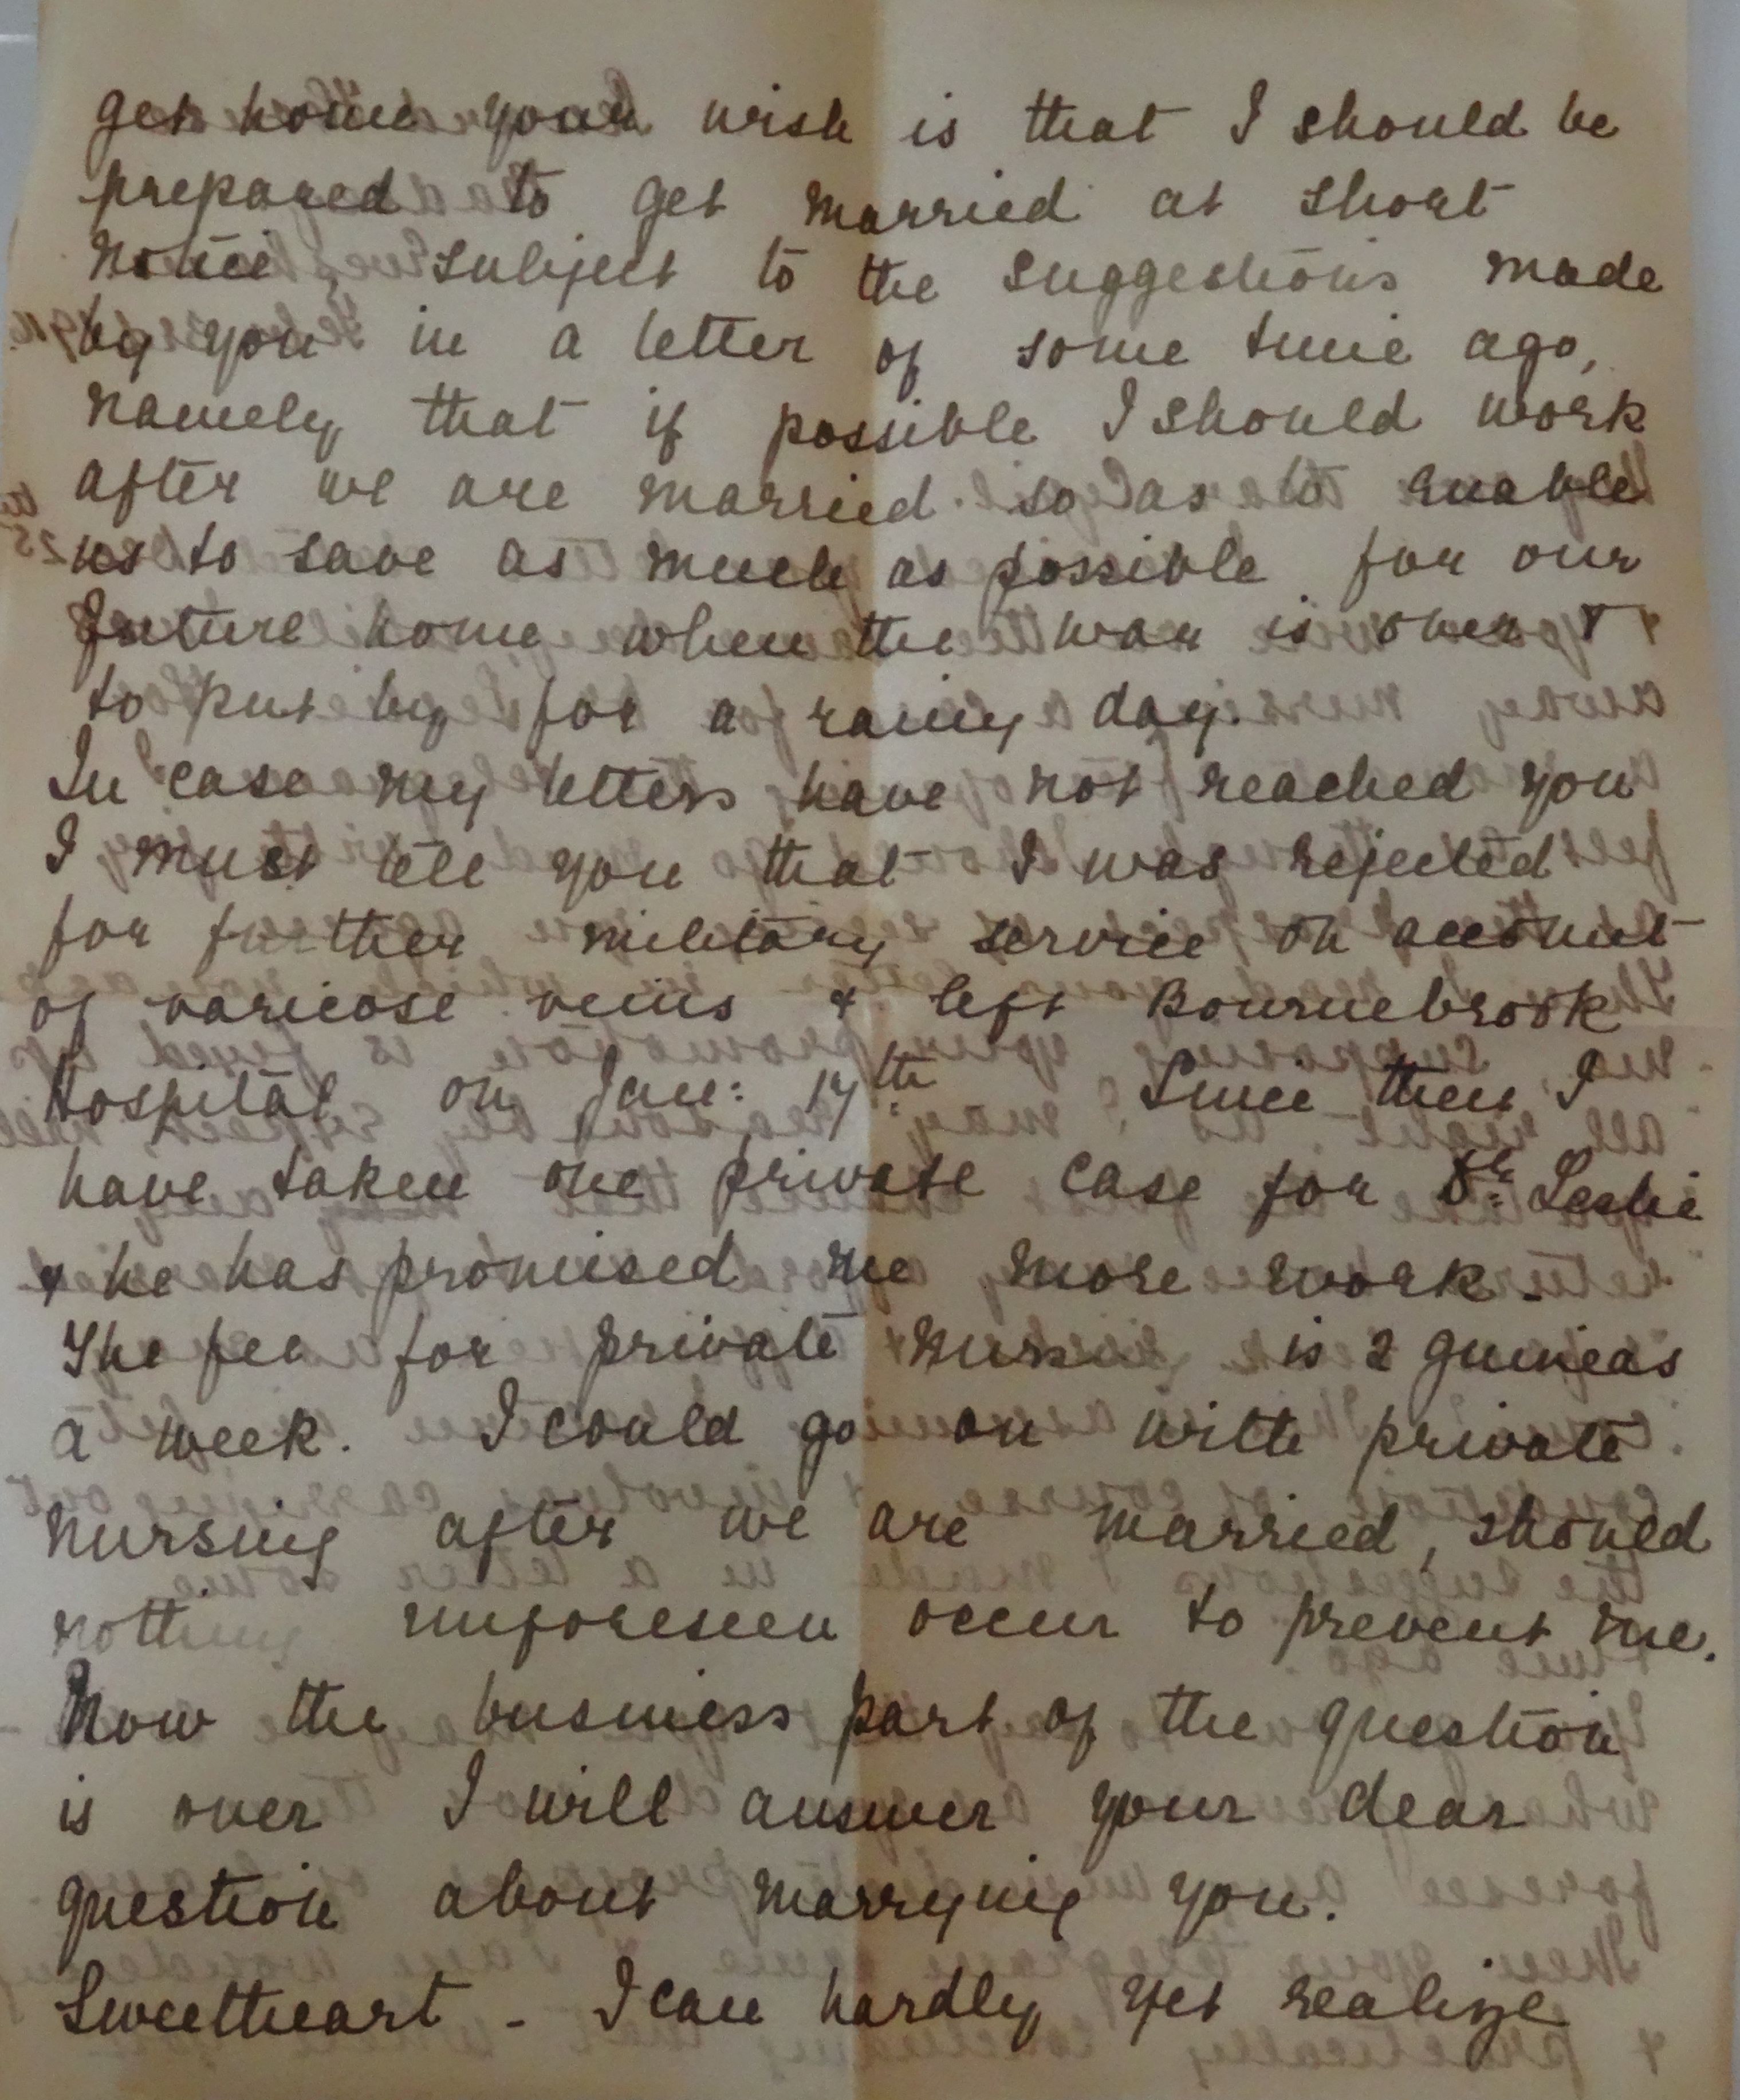 get home your wish is that I should be
prepared to get married at short
notice, subject to the suggestions made
by you in a letter of some time ago,
namely that if possible I should work
after we are married so as to enable
us to save as much as possible for our
future home when the war is over &
to put by for a rainy day.
In case my letters have not reached you
I must tell you that I was rejected
for further military service on account
of varicose veins & left Bournebrook
Hospital on Jan: 17th Since then I
have taken one private case for Dr. Leslie
& he has promised me more work.
The fee for private nursing is 2 guineas
a week. I could go on with private
nursing after we are married, should
nothing unforeseen occur to prevent me.
Now the business part of the question
is over I will answer your dear
question about marrying you.
Sweetheart - I can hardly yet realize